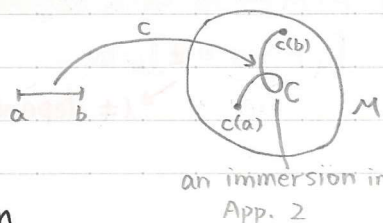 c
c(b)
a b
c(a)
C
M
an immersion in
App. 2